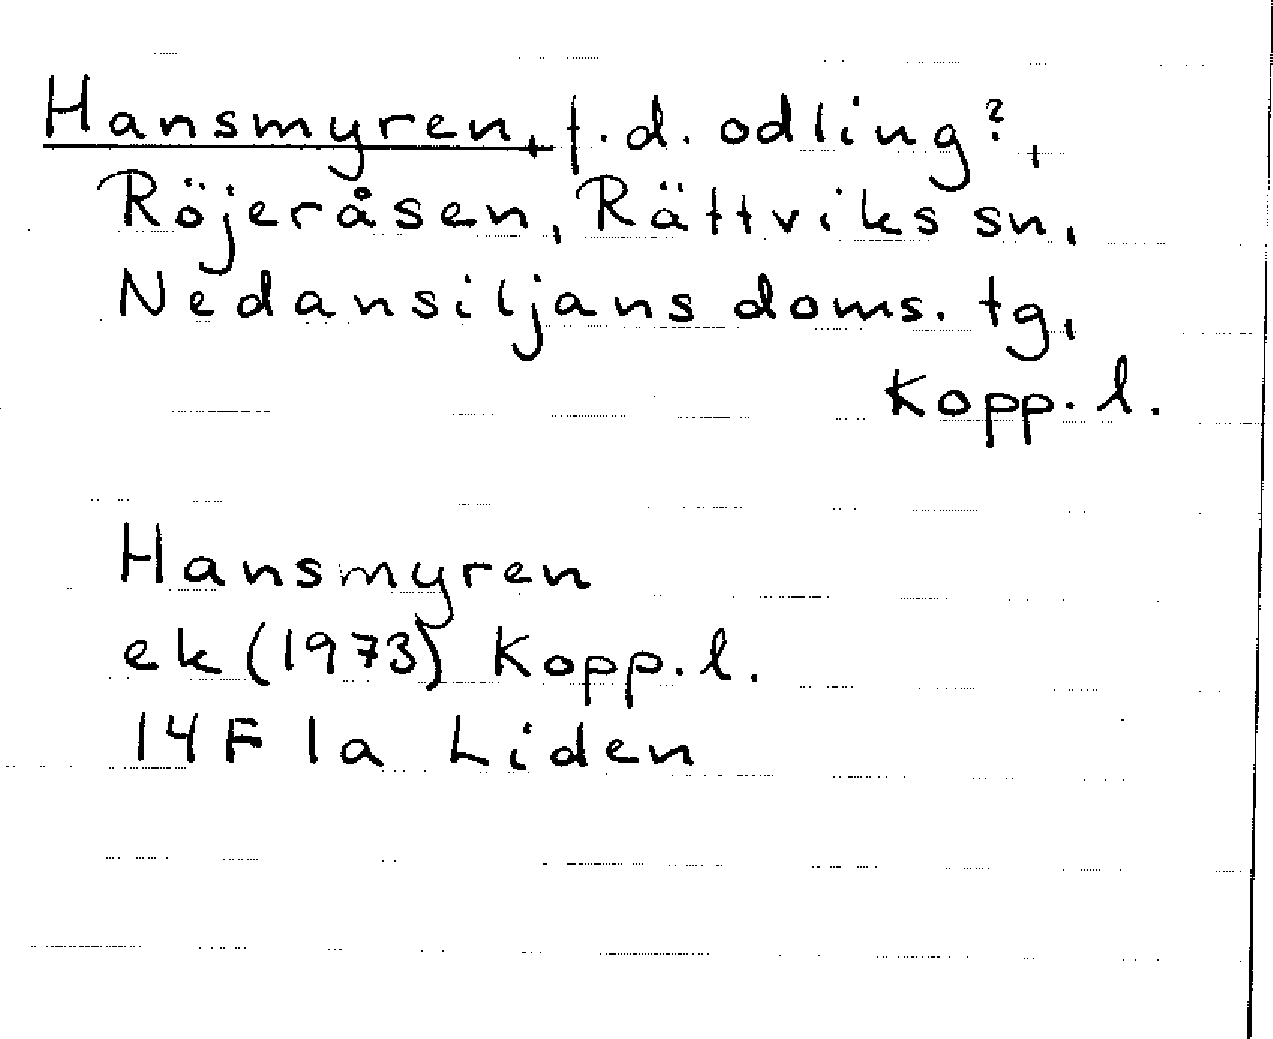 Hansmyren, f.d. odling?,
Röjeråsen, Rättviks sn,
Nedansiljans doms. tg,
Kopp. l.
Hansmyren
ek (1973) Kopp. l.
14F 1a Liden